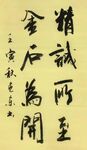 精誠所至
金石為開
壬寅秋